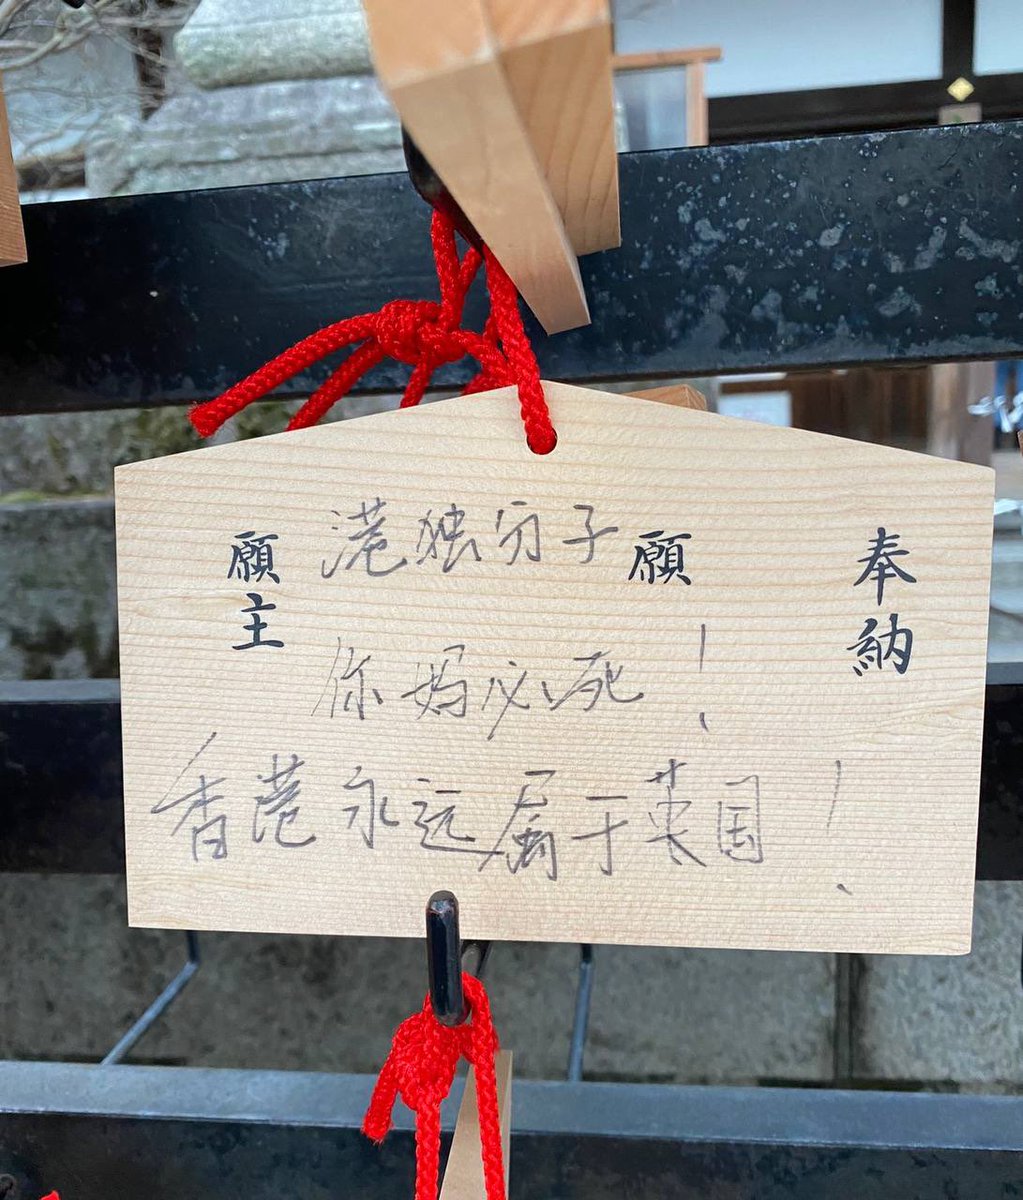 奉納
願
願主
港独分子
你妈必死！
香港永远属于英国！